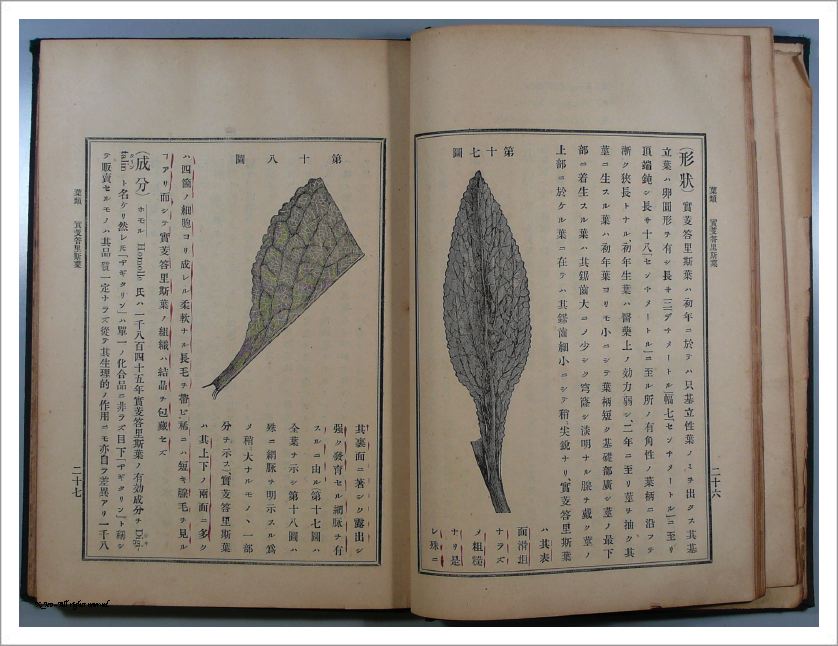 葉類　實芰答里斯葉
二十六
（形狀）實芰答里斯葉ハ初年ニ於テハ只基立性葉ノミヲ出タス其基
立葉ハ卵圓形ヲ有シ長キ三「デチメートル」幅七「センチメートル」ニ至リ
頂端鈍シ長サ十八「センチメートル」ニ至ル所ノ有角性ノ葉柄ニ沿フテ
漸ク狹長トナル初年生葉ハ醫藥上ノ効力弱シ、二年ニ至リ莖ヲ抽ク其
莖ニ生スル葉ハ初年葉ヨリモ小ニシテ葉柄短ク基礎部廣シ莖ノ最下
部ニ着生スル葉ハ其鋸齒大ニノ少シク穹窿シ淡明ナル腺ヲ戴ク莖ノ
上部ニ於ケル葉ニ在テハ其鋸齒細小ニシテ稍尖銳ナリ、實芰答里斯葉
第十七圖
ハ其表
面滑坦
ナラズ
メ粗糙
ナリ是
レ殊ニ
其裏面ニ著シク露出シ
強ク發育セル網脉ヲ有
スルニ由ル第十七圖ハ
全葉ヲ示シ第十八圖ハ
殊ニ網脉ヲ明示スル爲
メ稍大ナルモノヽ一部
分ヲ示ス、實芰答里斯葉
ハ其上下ノ兩面ニ多ク
第十八圖
ハ四箇ノ細胞ヨリ成レル柔軟ナル長毛ヲ帶ビ稀ニハ短キ腺毛ヲ見ル
コアリ而シテ實芰答里斯葉ノ組織ハ結晶ヲ包藏セズ
（成分）ホモル Homolle 氏ハ一千八百四十五年實芰答里斯葉ノ有効成分ヲ Digi-
talin ト名ケリ然レ𪜈「ヂギタリン」ハ單一ノ化合品ニ非ラズ目下「ヂギタリン」ト稱シ
テ販賣セルモノハ其品質一定ナラズ從テ其生理的ノ作用ニモ亦自ラ差異アリ一千八
葉類　實芰答里斯葉
二十七